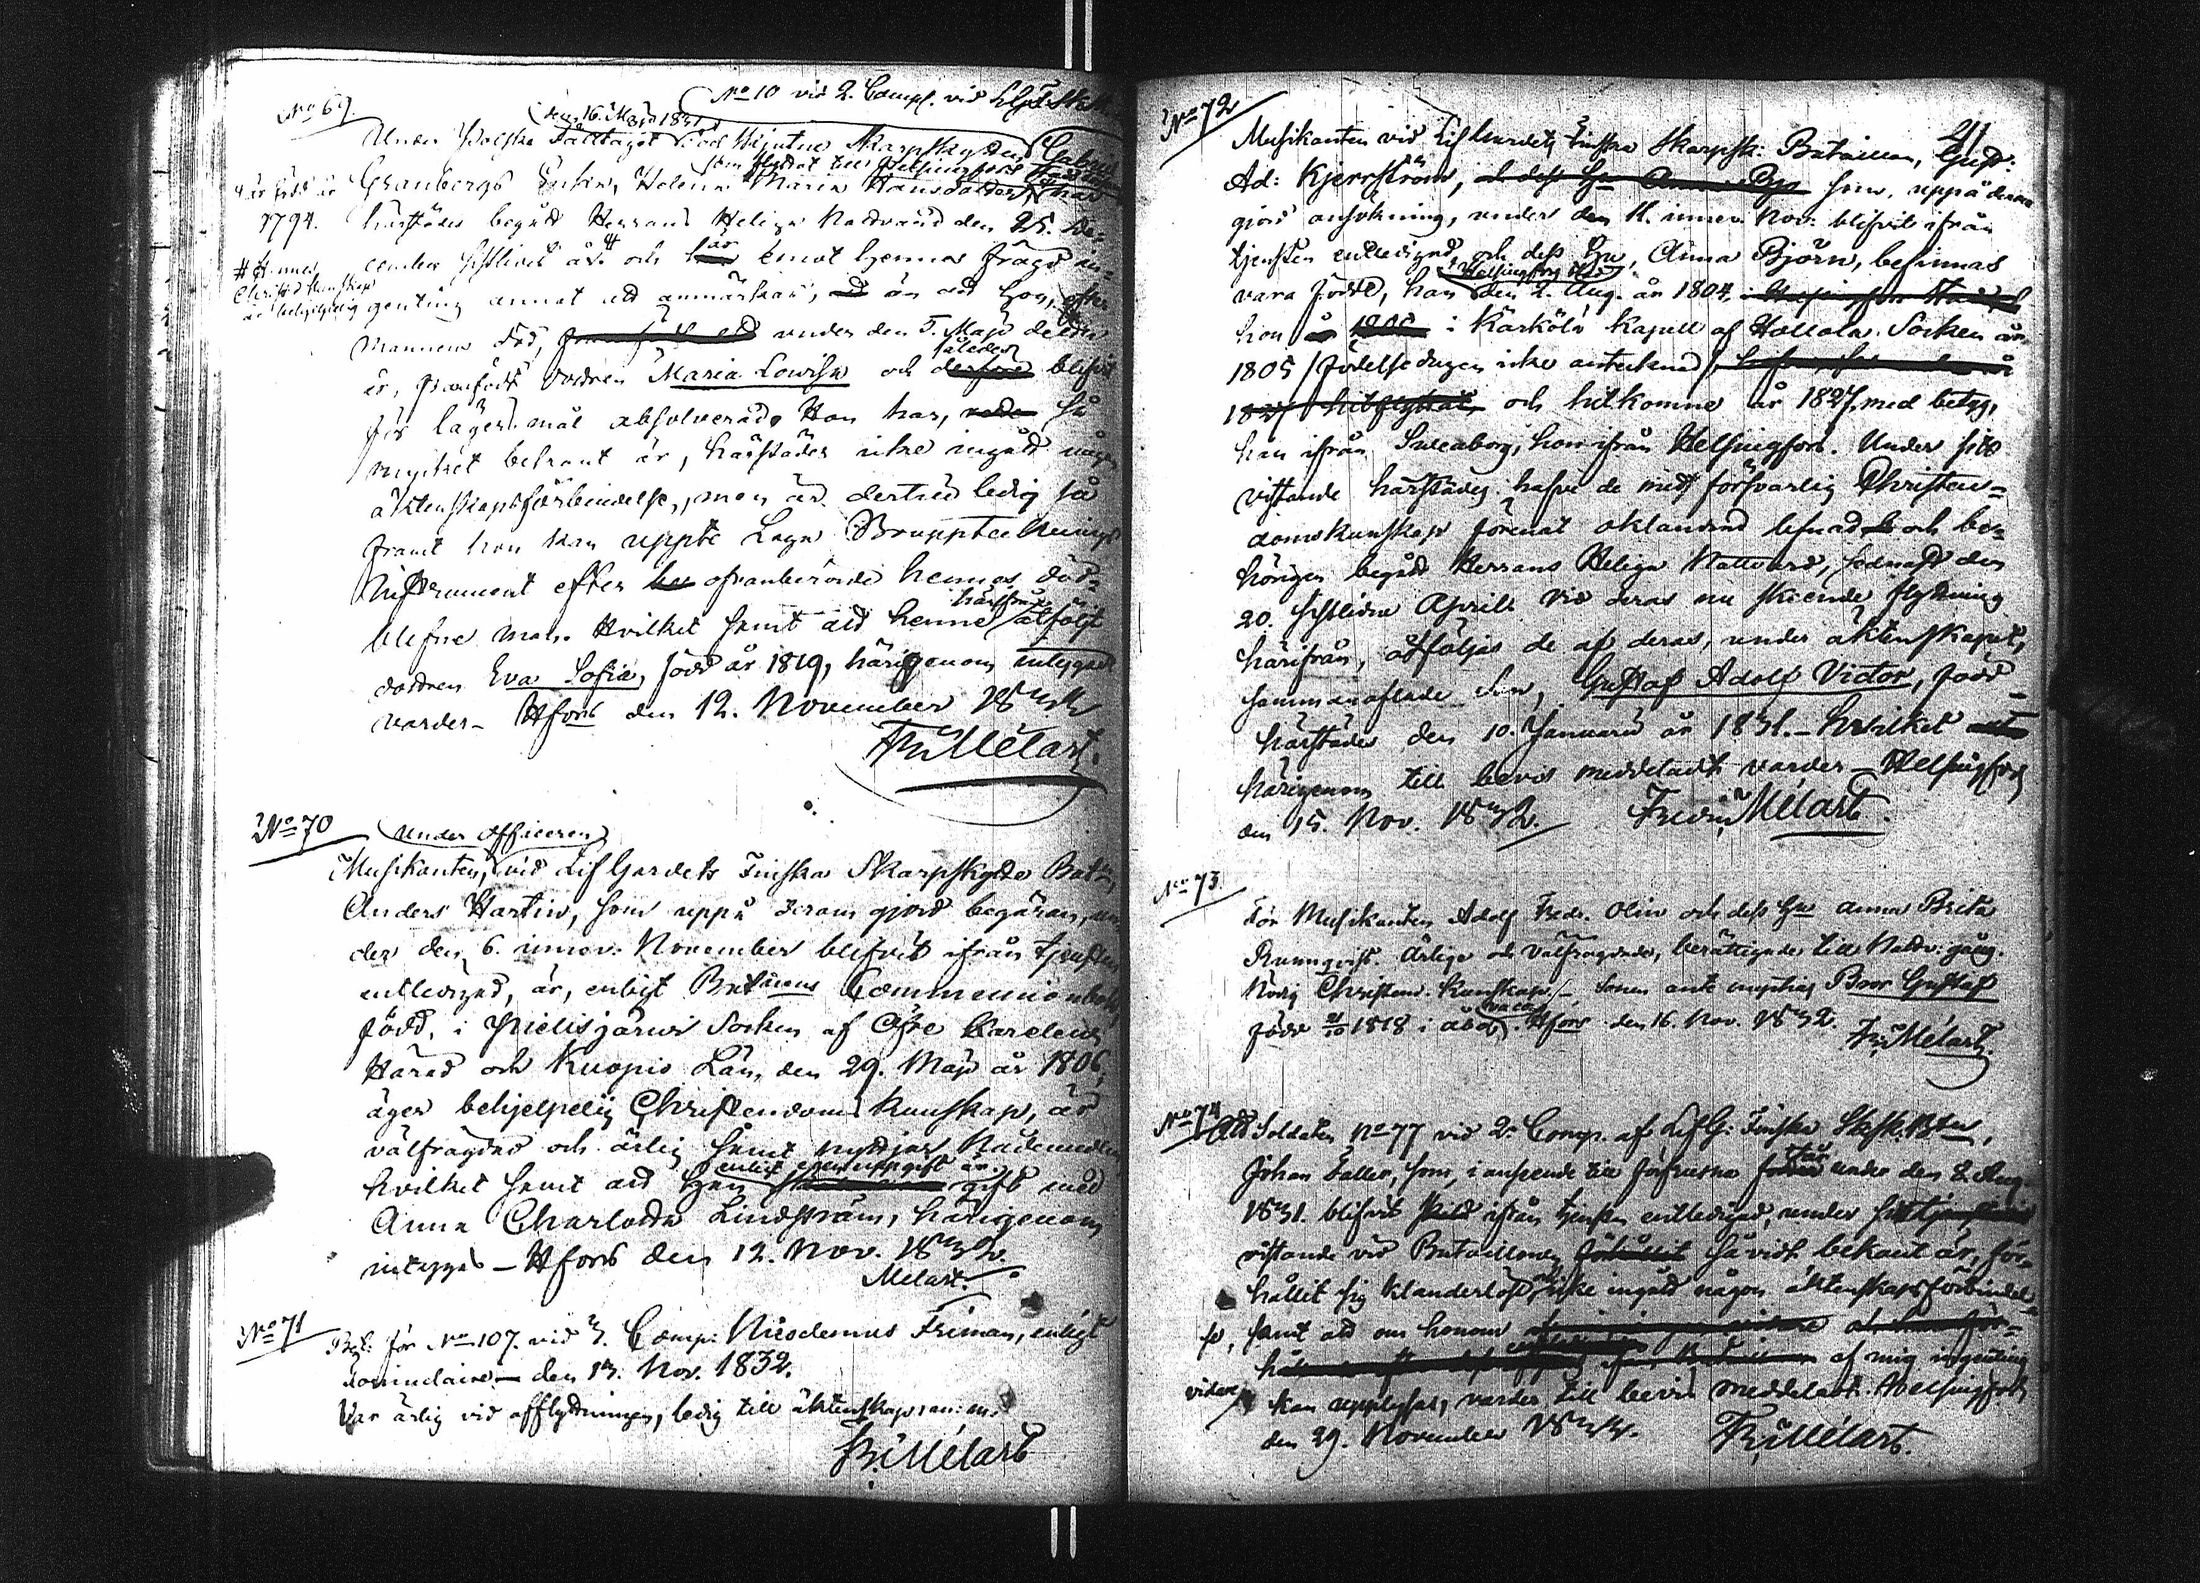 No 69.
No 10 vid 2. Comp. vid
den 16. Maji 1831
Under Polska Fälttåget död skjutne Skarpskytten Gabriel
som flyttat till Helsingfors
Granbergs Enka, Helena Maria Hansdotter, har
är född år
1794.
härstädes begått Herrans Heliga Nattvard den 25. De-
cember sistlidit år # och är emot hennes frägd in-
# Hennes
Christendomskunskap
är behjelpelig
genting annat att anmärka, än att hon, efter
mannens död, under den 7. Maji detta
år, framfödt dottren Maria Lowisa och således blifvit
för lägersmål absolverad. Hon har, så
mycket bekant är, härstädes icke ingått någon
äktenskapsförbindelse, men är dertill ledig så
framt hon kan uppte Laga Boupptecknings
Instrument efter ofvanberörde hennes död-
blefne man. Hvilket samt att henne härifrån åtföljt
dottren Eva Sofia, född år 1819, härigenom intygadt
varder. Hfors den 12. November 1832
Fr. Mélart.
No 70
Under officeren
Musikanten, vid Lif Gardets Finska Skarpskytte Bat:n,
Anders Hartin, som uppå derom gjord begäran, un-
der den 6. innev. November blifvit ifrån tjensten
entledigad, är, enligt Bataillons Communionbok,
född, i Pielisjärvi Socken af Öfre Karelens
Härad och Kuopio Län, den 29. Maji år 1806,
äger behjelpelig Christendoms kunskap, är
välfrägdad och ärlig samt nyttjat Nådemedlen
hvilket samt att Han enligt egen uppgift är gift med
Anna Charlotta Lindström, härigenom
intygas – Hfors den 12. Nov. 1832.
Mélart.
No 71
Bet: för No 107. vid 3. Comp: Nicodemus Friman, enligt
den 13. Nov. 1832.
Var ärlig vid afflyttningen, ledig till äktenskap, m: m.
Fr. Mélart
No 72
211
Musikanten vid Lif Gardets Finska Skarpsk: Bataillon, Gust:
Ad: Kjerrström, som, uppå derom
gjord ansökning, under den 11. innev. Nov: blifvit ifrån
tjensten entledigad, och dess Hu, Anna Björn, befinnas
vara födde, han i Helsingfors Stad den 2. Aug. år 1804,
hon i Kärkölä Kapell af Hollola Socken år
1805 /födelsedagen icke antecknad/,
och hitkomne år 1827. med betyg,
han ifrån Sveaborg, hon ifrån Helsingfors. Under sitt
vistande härstädes hafva de med försvarlig Christen-
domskunskap förenat oklandrad lefnad och be-
hörigen begått Herrans Heliga Nattvard, sednast den
20. sistlidne April. Vid deras nu skeende flyttning
härifrån, åtföljas de af deras, under äktenskapet,
sammanaflade Son, Gustaf Adolf Victor, född
härstädes den 10. Januarii år 1831. – hvilket
härigenom till bevis meddeladt varder – Helsingfors
den 15. Nov. 1832. Fredr. Mélart.
No 73.
För Musikanten Adolf Fredr. Olin och dess Hu Anna Brita
Runnqvist. Ärlige och välfrägdade, berättigade till Nattv: gång.
Nödig Christend. Kunskap. – Sonen ante nuptias Boor Gustaf
född 21/10 1818 i Åbo. Hfors den 16. Nov. 1832.
Fr. Mélart.
No 74
Att Soldaten No 77 vid 2. Comp. af LifG: Finska Skarpsk. Bat:n,
Johan Saller, som, i anseende till under den 2. Aug.
1831. blifvit ifrån tjensten entledigad, under sitt
vistande vid Bataillonen så vidt bekant är, för-
hållit sig klanderlöst, icke ingått någon äktenskapsförbindel-
se, samt att om honom
af mig ingenting
vidare kan upplysas, varder till bevis meddeladt. Helsingfors
den 29. November 1832.
Fr. Mélart.